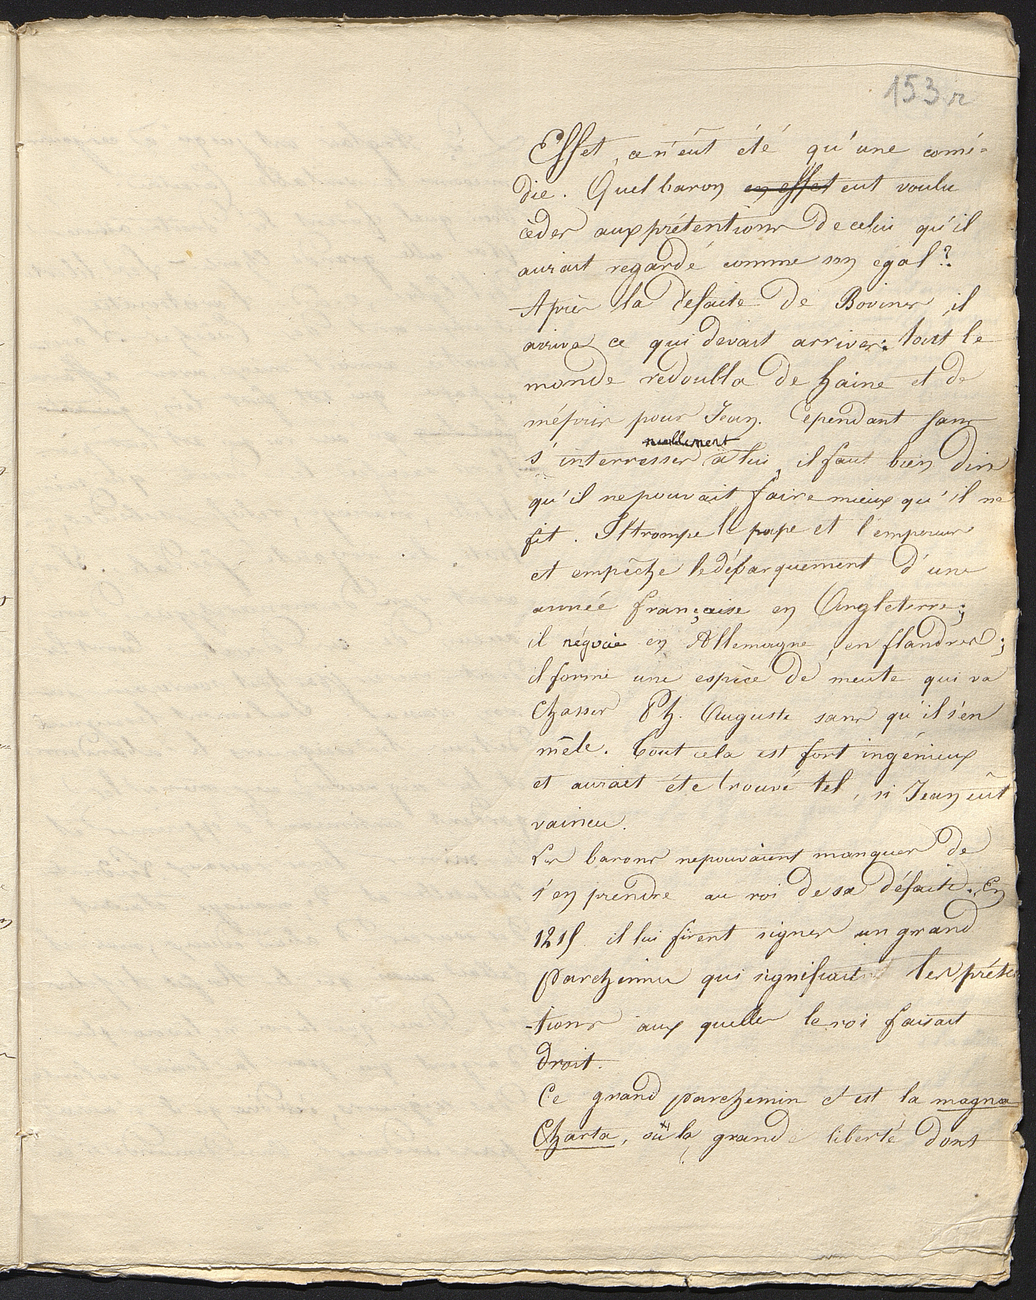 153 r
Effet, ce n'eût été qu'une comé-
die. Quel baron en effet eut voulu
céder aux prétentions de celui qu'il
aurait regardé comme son égal ?
Après la défaite de Bovines, il
arriva ce qui devait arriver : tout le
monde redoubla de haine et de
mépris pour Jean. Cependant sans
nullement
s'interresser à lui, il faut bien dire
qu'il ne pouvait faire mieux qu'il ne
fit. Il trompe le pape et l'empereur
et empêche le débarquement d'une
armée française en Angleterre ;
il négocie en Allemagne, en flandres ;
il forme une espèce de meute qui va
chasser Ph. Auguste sans qu'il s'en
mêle. Tout cela est fort ingénieux
et aurait été trouvé tel, si Jean eût
vaincu.
Les barons ne pouvaient manquer de
s'en prendre au roi de sa défaite. En
1215 il lui firent signer un grand
parchemin qui signifiait les préten
-tions aux quelles le roi faisait
droit.
Ce grand parchemin c'est la magna
Charta, où la grande liberté dont